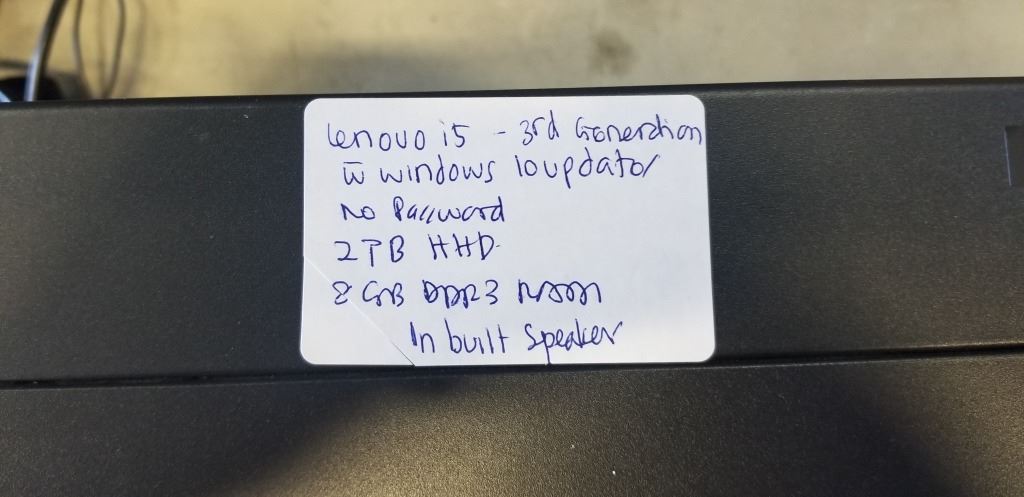 Lenovo i5 - 3rd Generation
w̅ windows 10 updator
No Password
2TB HHD
8 GB DDR3 RAM
In built Speaker